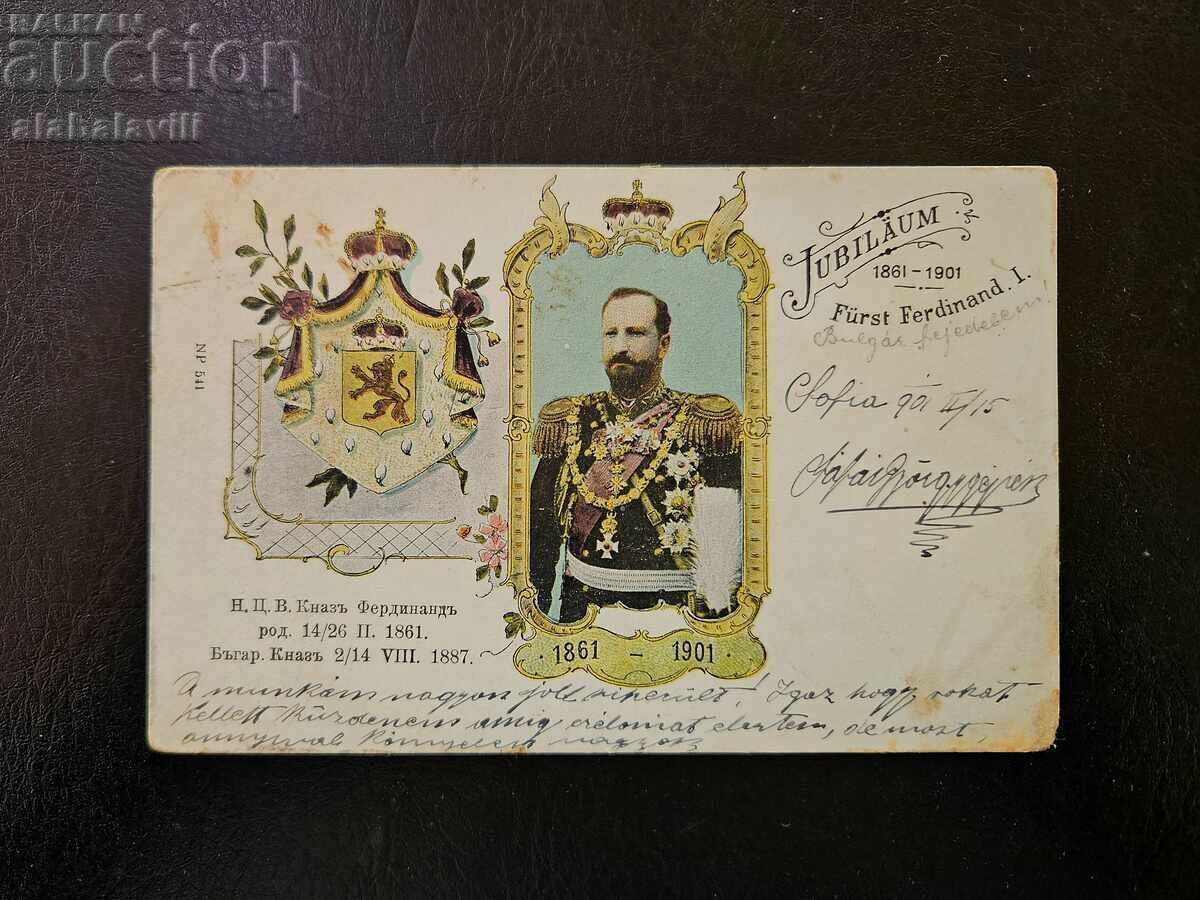 BALKAN
auction
alabalavill
JUBILÄUM
1861-1901
Fürst Ferdinand. I.
Bulgár fejedelem!
Sofia 901 II/15
NP 541
Н. Ц. В. Кназъ Фердинандъ
род. 14/26 II. 1861.
Бъгар. Кназъ 2/14 VIII. 1887.
· 1861 – 1901 ·
A munkám nagyon jól sikerült! Igaz hogy sokat
kellett küzdenem amig czélomat elértem, de most
annyival